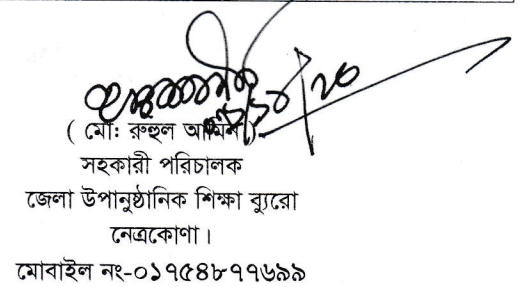 ( মোঃ রুহুল আমিন )
সহকারী পরিচালক
জেলা উপানুষ্ঠানিক শিক্ষা ব্যুরো
নেত্রকোণা।
মোবাইল নং-০১৭৫৪৮৭৭৬৯৯